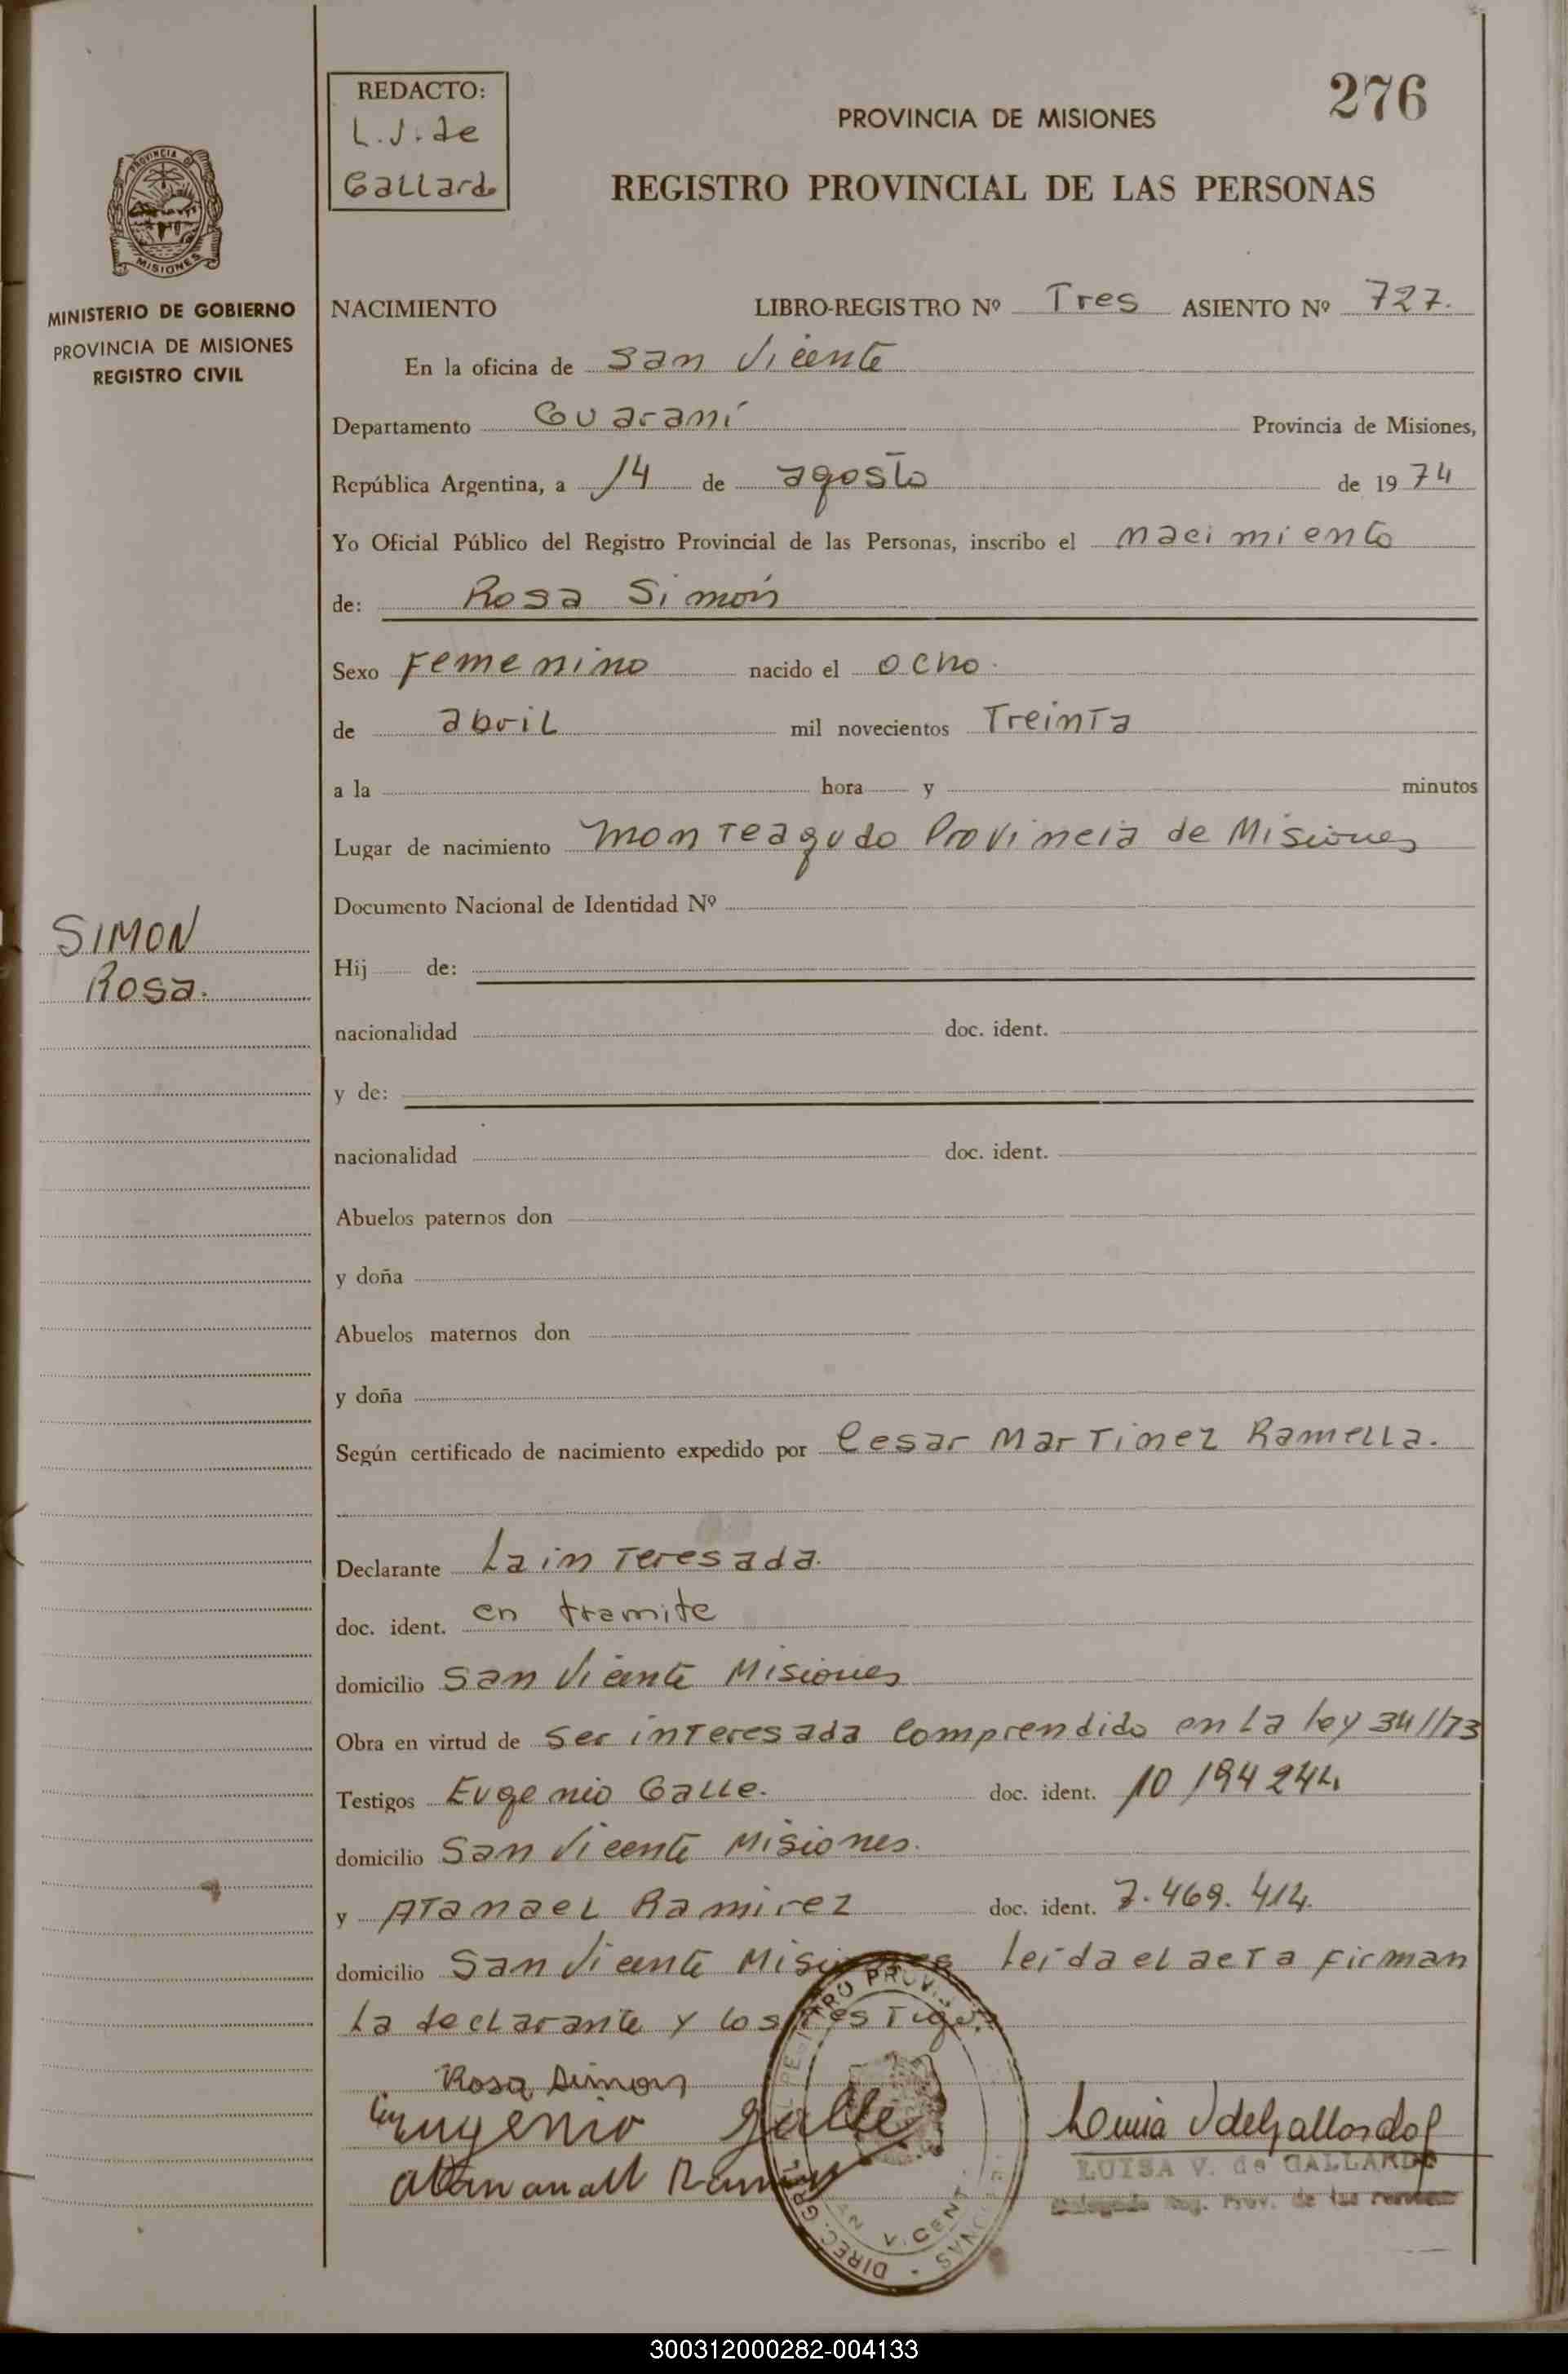 276
REDACTO:
L.J. de
Gallardo
PROVINCIA DE MISIONES
REGISTRO PROVINCIAL DE LAS PERSONAS
PROVINCIA DE
MISIONES
MINISTERIO DE GOBIERNO
PROVINCIA DE MISIONES
REGISTRO CIVIL
NACIMIENTO LIBRO-REGISTRO Nº Tres ASIENTO Nº 727.
En la oficina de San Vicente
Departamento Guaraní Provincia de Misiones,
República Argentina, a 14 de agosto de 1974
Yo Oficial Público del Registro Provincial de las Personas, inscribo el nacimiento
de: Rosa Simón
Sexo Femenino nacido el ocho.
de abril mil novecientos Treinta
a la hora y minutos
Lugar de nacimiento Monteagudo Provincia de Misiones
Documento Nacional de Identidad Nº
SIMON
Rosa.
Hij de:
nacionalidad doc. ident.
y de:
nacionalidad doc. ident.
Abuelos paternos don
y doña
Abuelos maternos don
y doña
Según certificado de nacimiento expedido por Cesar Martinez Ramella.
Declarante La interesada.
doc. ident. en tramite
domicilio San Vicente Misiones
Obra en virtud de ser interesada comprendido en la ley 341/73
Testigos Eugenio Galle. doc. ident. 10 194 244
domicilio San Vicente Misiones.
y Atanael Ramirez doc. ident. 7.469.414.
domicilio San Vicente Misiones leída el acta firman
la declarante y los testigos.
Rosa Simon
Eugenio Galle
LUISA V. de GALLARDO
Delegada Reg. Prov. de las Personas
300312000282-004133